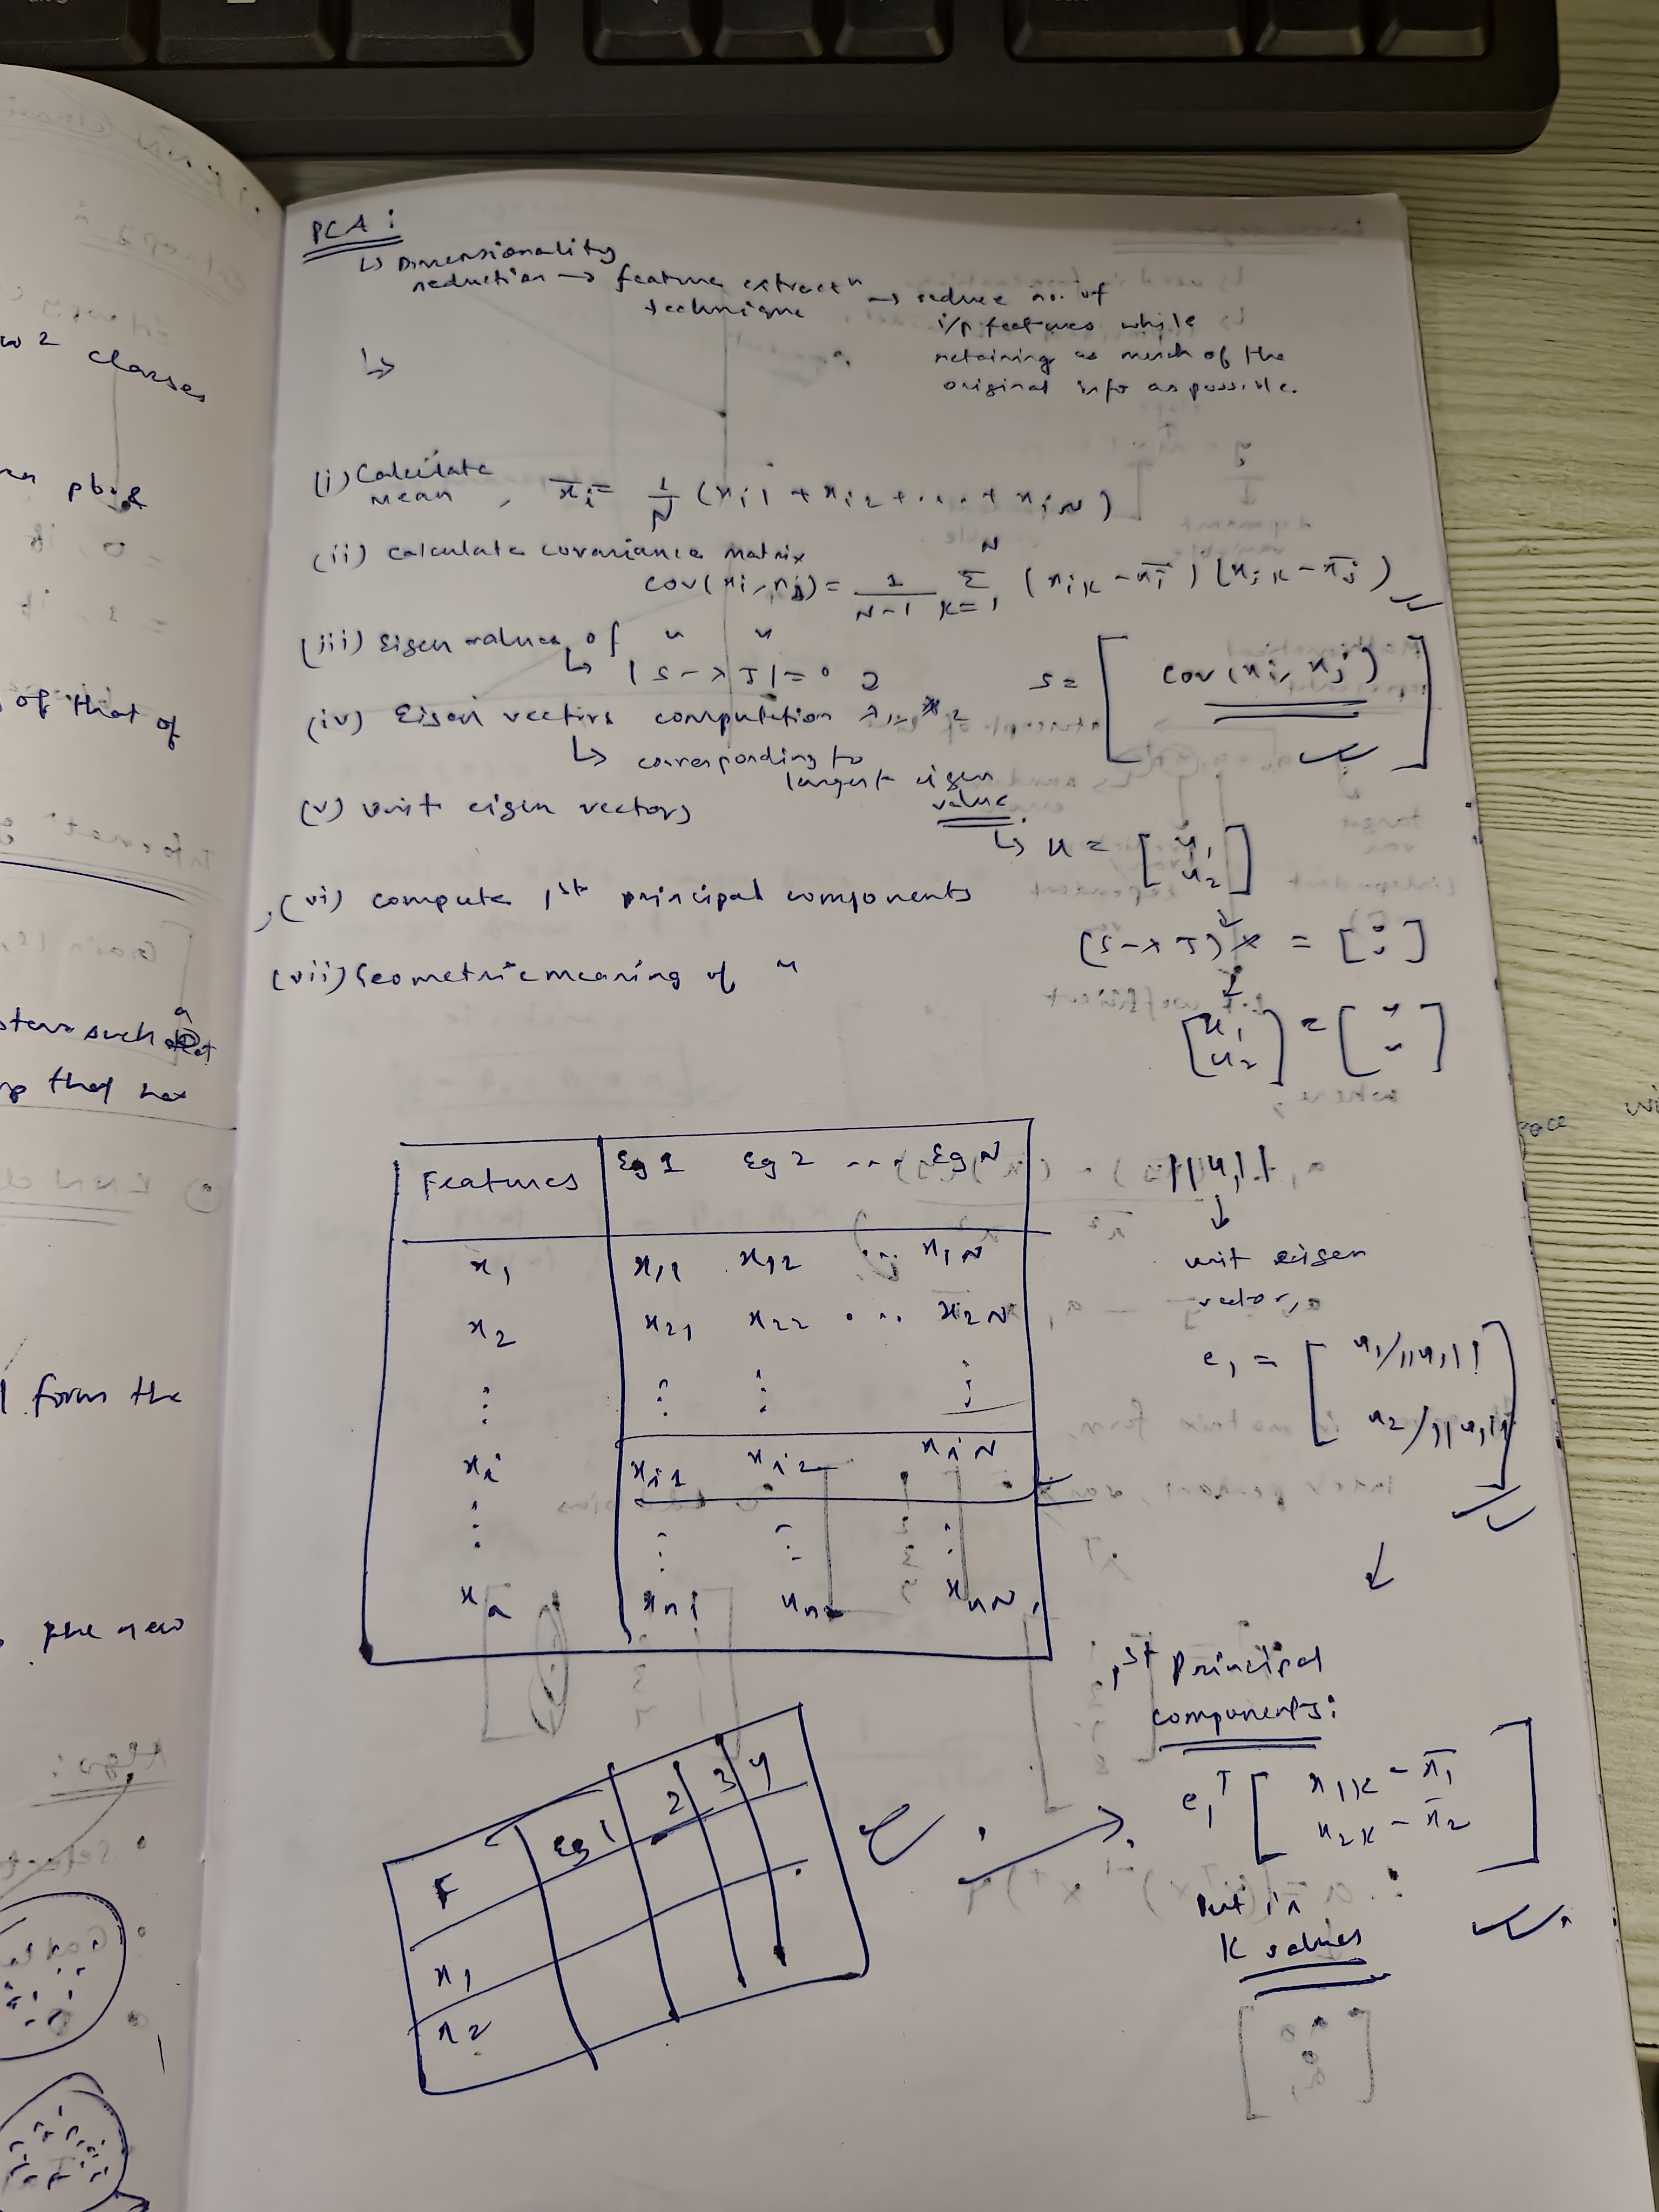 PCA :
↳ Dimensionality
reduction → feature extractⁿ technique → reduce no. of
i/p features while
retaining as much of the
original info as possible.
↳
(i) Calculate mean, x̄i = 1/N (xi1 + xi2 + .... + xiN)
(ii) calculate covariance matrix
cov(xi, xj) = 1/(N-1) Σ k=1 N (xik - x̄i) (xjk - x̄j)
(iii) Eigen values of " "
↳ |S - λI| = 0
S = [ cov(xi, xj) ]
(iv) Eigen vectors computation
↳ corresponding to
largest eigen
value
(v) unit eigen vectors
↳ u = [ u1 u2 ]
(vi) compute 1st principal components
(S - λI)
(vii) Geometric meaning of "
[ u1 u2 ] =
Features Eg 1 Eg 2 ... Eg N
x1 x11 x12 ... x1N
x2 x21 x22 ... x2N
⋮ ⋮ ⋮ ⋮
xi xi1 xi2 xiN
⋮ ⋮ ⋮ ⋮
xn xn1 xn2 xnN
||u1||
↓
unit eigen
vector,
e1 = [ u1/||u1||
u2/||u1|| ]
1st Principal
components:
e1ᵀ [ x1k - x̄1
x2k - x̄2 ]
Put in
K values
F Eg 1 2 3 4
x1
x2
2 classes
of that of
such
that
form the
the new